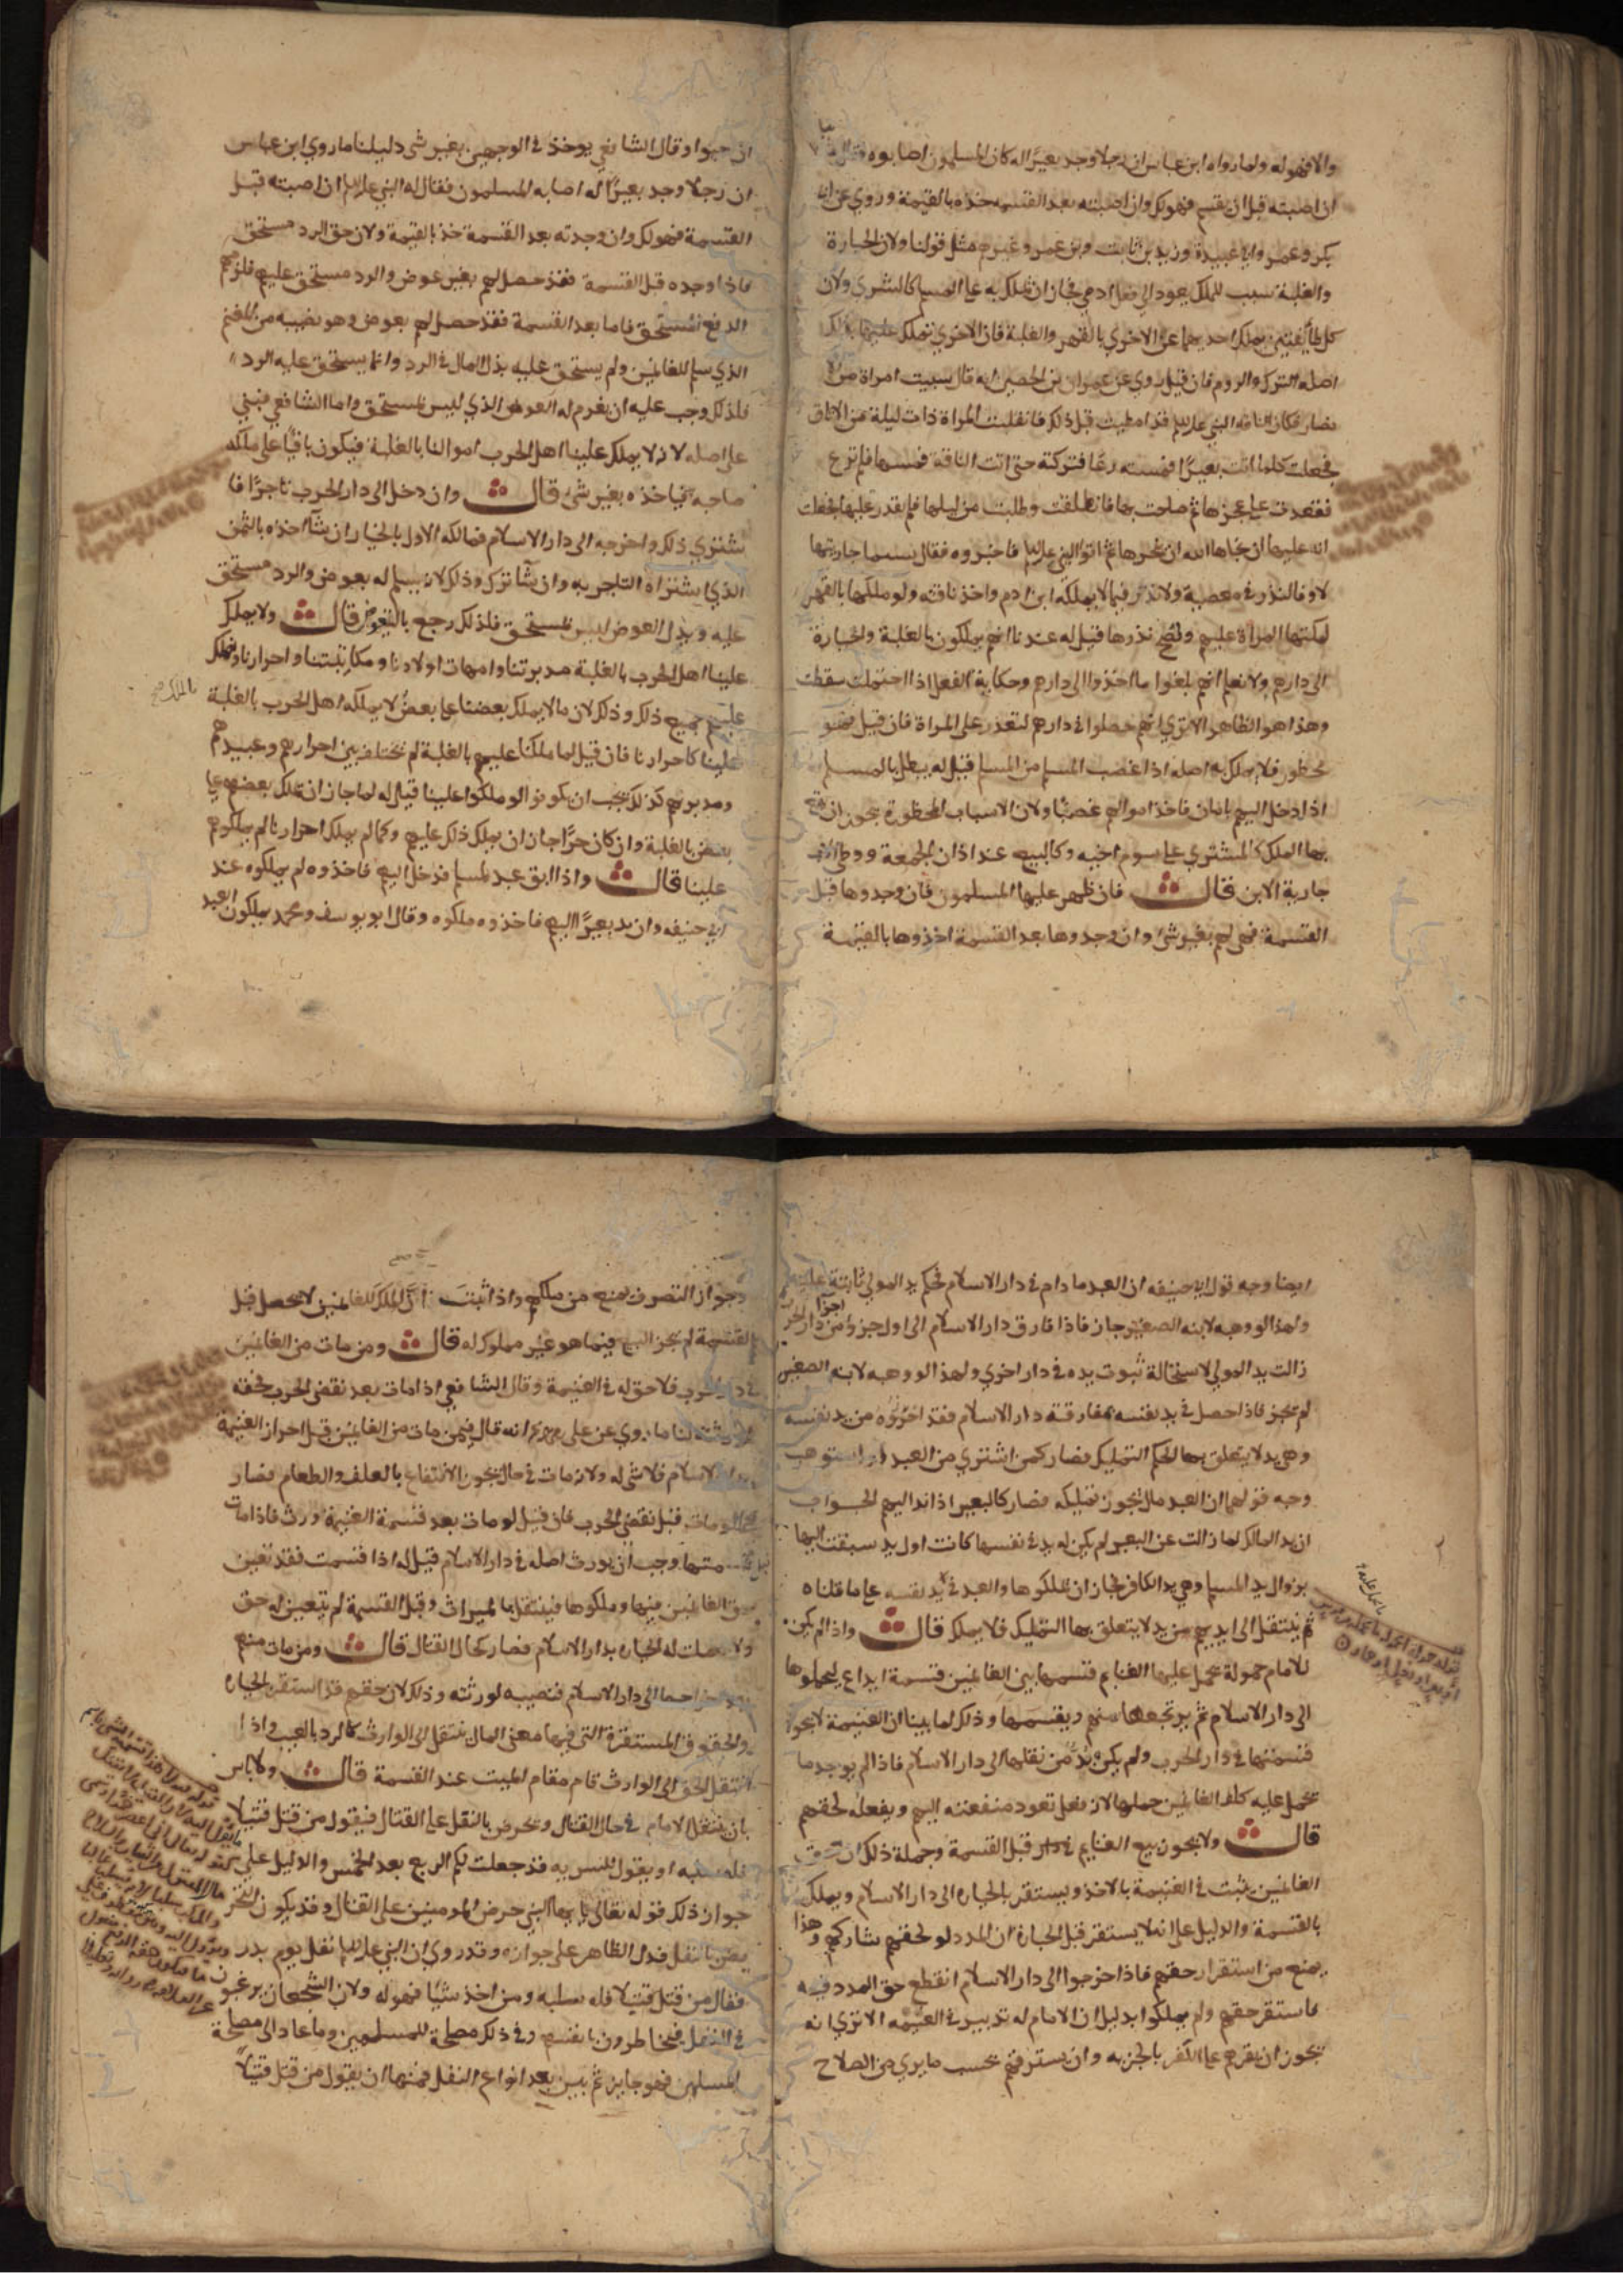 والا فهو له ولما رواه ابن عباس ان رجلا وجد بعيرا له كان المسلمون اصابوه فقال
ان اصبته قبل ان يقسم فهو لك وان اصبته بعد القسمه خذه بالقيمة وروي عن ابي
بكر وعمر وابي عبيدة وزيد بن ثابت وابن عمر وغيرهم مثل قولنا ولان الحيازة
والغلبة سبب للملك يعود الى فعل ادمي فجاز ان يملك به على المسلم كالشرى ولان
كل طائفتين يملك احديهما عن الاخري بالقهر والغلبة فان الاخري تملك عليها بذلك
اصله الترك والروم فان قيل روي عن عمران بن الحصين انه قال سبيت امراة من
نصار وكان الناقه النبي عليلم قد اصيبت قبل ذلك فانفلتت المراة ذات ليلة من الوثاق
فجعلت كلما اتت بعيرا فمسته رغا فتركته حتى اتت الناقة فمستها فلم ترغ
فقعدت على عجزها ثم صاحت بها فانطلقت وطلبت من ليلها فلم يقدر عليها فجعلت
لله عليها ان نجاها الله ان تنحرها ثم اتوا النبي عليلم فاخبروه فقال بئسما جازيتها
لا وفا لنذر في معصية ولا نذر فيما لا يملكه ابن ادم واخذ ناقته ولو ملكها بالقهر
لملكتها المراة عليهم وتصح نذرها قيل له عندنا انهم يملكون بالغلبة والحيازة
الى دارهم ولا نعلم انهم بلغوا ما اخذوا الى دارهم وحكاية الفعل اذا احتملت سقطت
وهذا هو الظاهر الا تري انهم حصلوا في دارهم لتعذر على المراة فان قيل فهو
محظور فلا يملك به اصله اذا غصب المسلم من المسلم قيل له يبطل بالمسلم
اذا دخل اليهم بامان فاخذ اموالهم غصبا ولان الاسباب المحظورة يجوز ان يقع
بها الملك كالمشتري على سوم اخيه وكالبيع عند اذان الجمعة ووطي الاب
جارية الابن قال فان ظهر عليها المسلمون فان وجدوها قبل
القسمة فهي لهم بغير شئ وان وجدوها بعد القسمة اخذوها بالقيمة
ان حبوا وقال الشافعي يوخذ في الوجهين بغير شي دليلنا ما روي ابن عباس
ان رجلا وجد بعيرا له اصابه المسلمون فقال له النبي عليلم ان اصبته قبل
القسمة فهو لك وان وجدته بعد القسمة خذ بالقيمة ولان حق الرد مستحق
فاذا وجده قبل القسمة فقد حصل لهم بغير عوض والرد مستحق عليهم فلزمهم
الدفع لمستحق فاما بعد القسمة فقد حصل لهم بعوض وهو نصيبه من المغنم
الذي سلم للغانمين ولم يستحق عليه بذل المال في الرد وانما يستحق عليه الرد
فلذلك وجب عليه ان يغرم له العوض الذي ليس بمستحق واما الشافعي فبنى
على اصله لانه لا يملك علينا اهل الحرب اموالنا بالغلبة فيكون باقيا على ملك
صاحبه فياخذه بغير شئ قال وان دخل الى دار الحرب تاجرا فا
شتري ذلك واخرجه الى دار الاسلام فمالكه الاول بالخيار ان شا اخذه بالثمن
الذي اشتراه التاجر به وان شا ترك وذلك لانه يسلم له بعوض والرد مستحق
عليه وبدل العوض ليس بمستحق فلذلك رجع بالعوض قال ولا يملك
علينا اهل الحرب بالغلبة مدبرتنا وامهات اولادنا ومكاتبتنا واحرارنا ونملك
عليهم جميع ذلك وذلك لان ما لا يملك بعضنا على بعض لا يملكه اهل الحرب بالغلبة
علينا كاحرارنا فان قيل لما ملكنا عليهم بالغلبة لم يختلف بين احرارهم وعبيدهم
ومدبريهم كذلك يجب ان يكونوا لو ملكوا علينا قيل له لما جاز ان يملك بعضهم على
بعض بالغلبة وان كان حرا جاز ان يملك ذلك عليهم وكما لم يملك احرارنا لم يملكوهم
علينا قال واذا ابق عبد لمسلم فدخل اليهم فاخذوه لم يملكوه عند
ابي حنيفه وان ند بعير اليهم فاخذوه ملكوه وقال ابو يوسف ومحمد يملكون العبد
ايضا وجه قول ابي حنيفه ان العبد ما دام في دار الاسلام فحكم يد المولي ثابتة عليه
ولهذا لو وهبه لابنه الصغير جاز فاذا فارق دار الاسلام الى اول جزؤ من دار الحرب
زالت يد المولي لاستحالة ثبوت يده في دار اخري ولهذا لو وهبه لابنه الصغير
لم يجز فاذا حصل في يد نفسه بمفارقة دار الاسلام فقد اخذوه من يد نفسه
وهي يد لا يتعلق بها الحكم التمليك فصار كمن اشتري من العبد او استوهب
وجه قولهما ان العبد مال يجوز تمليكه فصار كالبعير اذا ند اليهم الجواب
ان يد المالك لما زالت عن البعير لم يكن له يد في نفسها كانت اول يد سبقت اليها
بزوال يد المسلم وهي يد الكافر فجاز ان يملكوها والعبد في يد نفسه على ما قلناه
ثم ينتقل الى ايديهم من يد لا يتعلق بها التمليك فلا يملك قال واذا لم يكن
للامام حمولة يحمل عليها الغنايم قسمها بين الغانمين قسمة ايداع ليحملوها
الى دار الاسلام ثم يرتجعها منهم ويقسمها وذلك لما بينا ان الغنيمة لا يجوز
قسمتها في دار الحرب ولم يكن بد من نقلها الى دار الاسلام فاذا لم يوجد ما
يحمل عليه كلف الغانمين حملها لانه فعل تعود منفعته اليهم ويفعله لحقهم
قال ولا يجوز بيع الغنايم قبل القسمة وجملة ذلك ان حق
الغانمين يثبت في الغنيمة بالاخذ ويستقر بالحيازه الى دار الاسلام ويملك
بالقسمة والدليل على انه لا يستقر قبل الحيازة ان المدد لو لحقهم شاركهم وهذا
يمنع من استقرار حقهم فاذا خرجوا الى دار الاسلام انقطع حق المدد فيه
فاستقر حقهم ولم يملكوا بدليل ان الامام له تدبير في الغنيمه الا تري انه
يجوز ان يقرهم على الكفر بالجزيه وان يسترقهم بحسب ما يري من الصلاح
وجواز التصرف يمنع من ملكهم واذا اثبت ان الملك للغانمين لا يحصل قبل
القسمة لم يجز البيع فيما هو غير مملوك له قال ومن مات من الغانمين
في دار الحرب فلا حق له في الغنيمة وقال الشافعي اذا مات بعد نقضي الحرب فحقه
لورثته لنا ما روي عن علي انه قال فيمن مات من الغانمين قبل احراز الغنيمة
بدار الاسلام فلا شي له ولانه مات في حال يجوز الانتفاع بالعلف والطعام فصار
كما لو مات قبل نقضي الحرب فان قيل لو مات بعد قسمة الغنيمة ورث فاذا مات
قبل قسمتها وجب ان يورث اصله في دار الاسلام قيل له اذا قسمت فقد تعين
حق الغانمين فيها وملكوها فينتقل بالميراث وقبل القسمة لم يتعين له حق
ولا حصلت له الحيازه بدار الاسلام فصار كحال القتال قال ومن مات منهم
بعد اخراجها الى دار الاسلام فنصيبه لورثته وذلك لان حقهم قد استقر بالحيازه
والحقوق المستقرة التي فيها معنى المال ينتقل الى الوارث كالرد بالعيب واذا
انتقل الحق الى الوارث قام مقام الميت عند القسمة قال ولا باس
بان ينفل الامام في حال القتال ويحرض بالنفل على القتال فيقول من قتل قتيلا
فله سلبه او يقول للسريه قد جعلت لكم الربع بعد الخمس والدليل على
جواز ذلك قوله تعالى يا ايها النبي حرض المومنين على القتال وقد يكون التحريض
بالنفل فدل الظاهر على جوازه وقد روي ان النبي عليلم نفل يوم بدر
فقال من قتل قتيلا فله سلبه ومن اخذ شيا فهو له ولان الشجعان يرغبون
في النفل فيخاطرون بانفسهم وفي ذلك مصلحة للمسلمين وما عاد الى مصلحة
المسلمين فهو جايز ثم يبين بعد انواع النفل فمنها ان يقول من قتل قتيلا